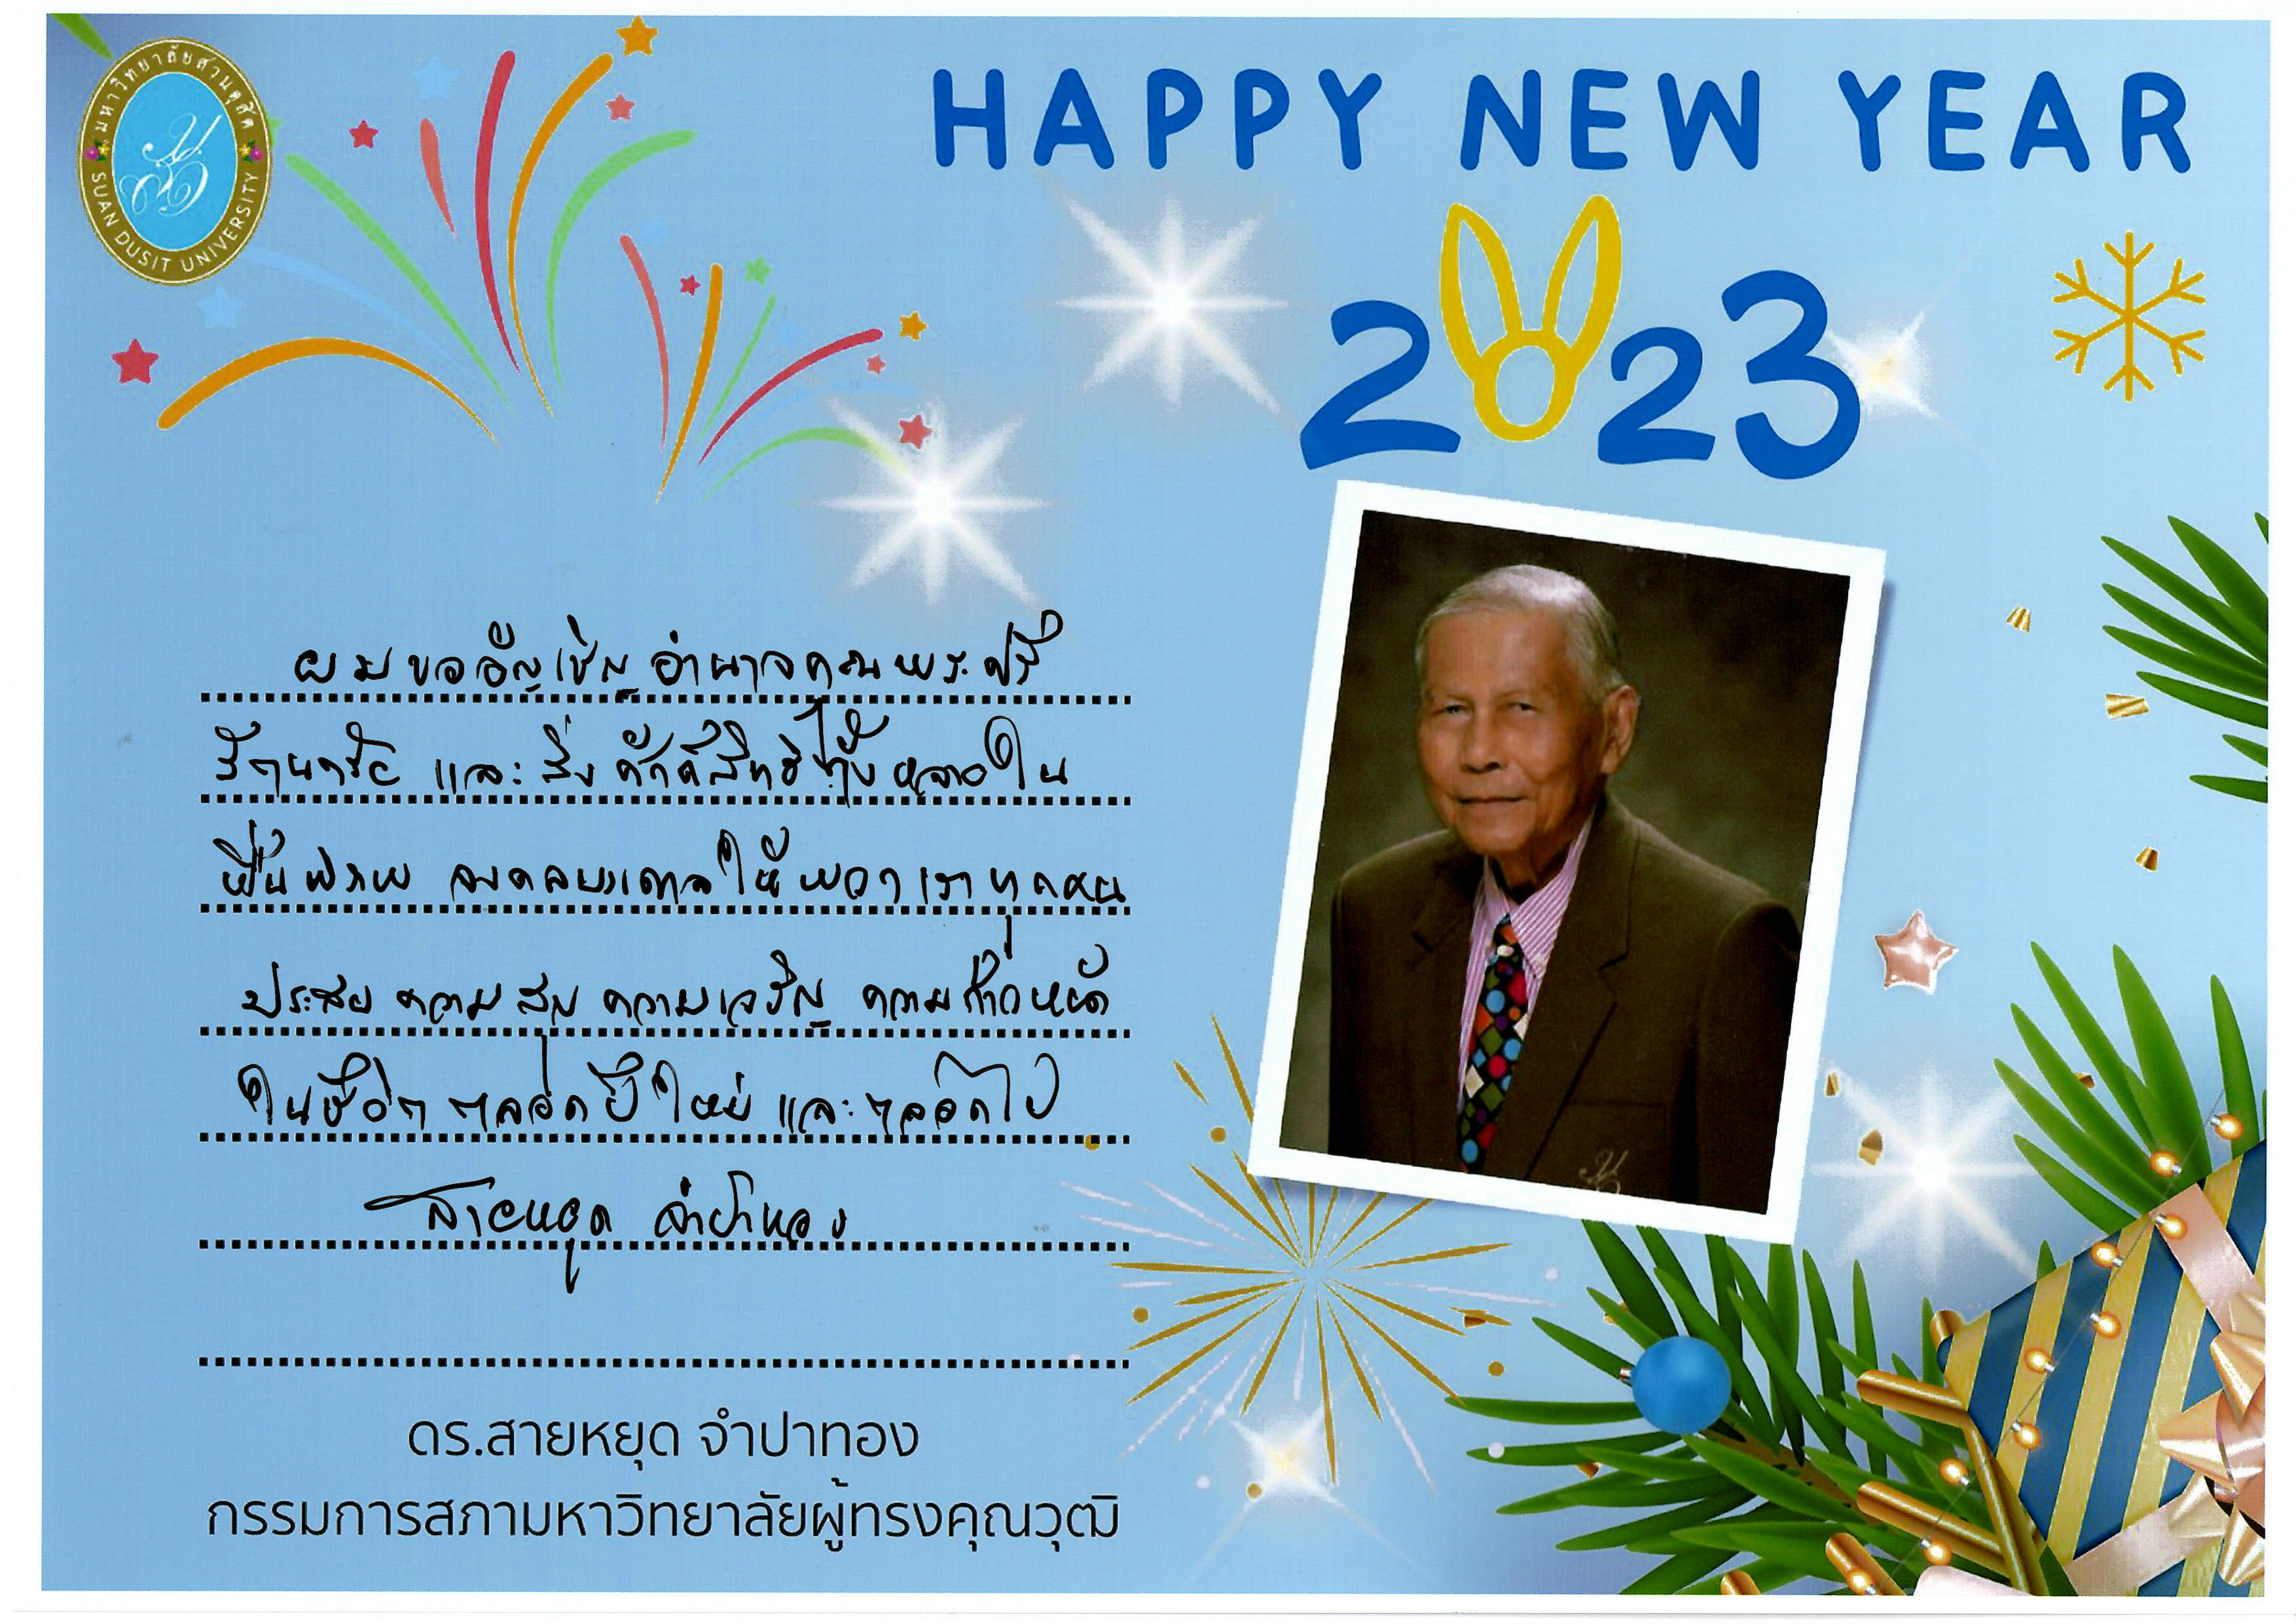 มหาวิทยาลัยสวนดุสิต
SUAN DUSIT UNIVERSITY
HAPPY NEW YEAR
2023
ผมขออัญเชิญอำนาจคุณพระศรี
รัตนตรัย และสิ่งศักดิ์สิทธิ์ทั้งหลายใน
พื้นพิภพ จงดลบันดาลให้พวกเราทุกคน
ประสบความสุข ความเจริญ ความก้าวหน้า
ในชีวิต ตลอดปีใหม่ และตลอดไป
สายหยุด จำปาทอง
ดร.สายหยุด จำปาทอง
กรรมการสภามหาวิทยาลัยผู้ทรงคุณวุฒิ